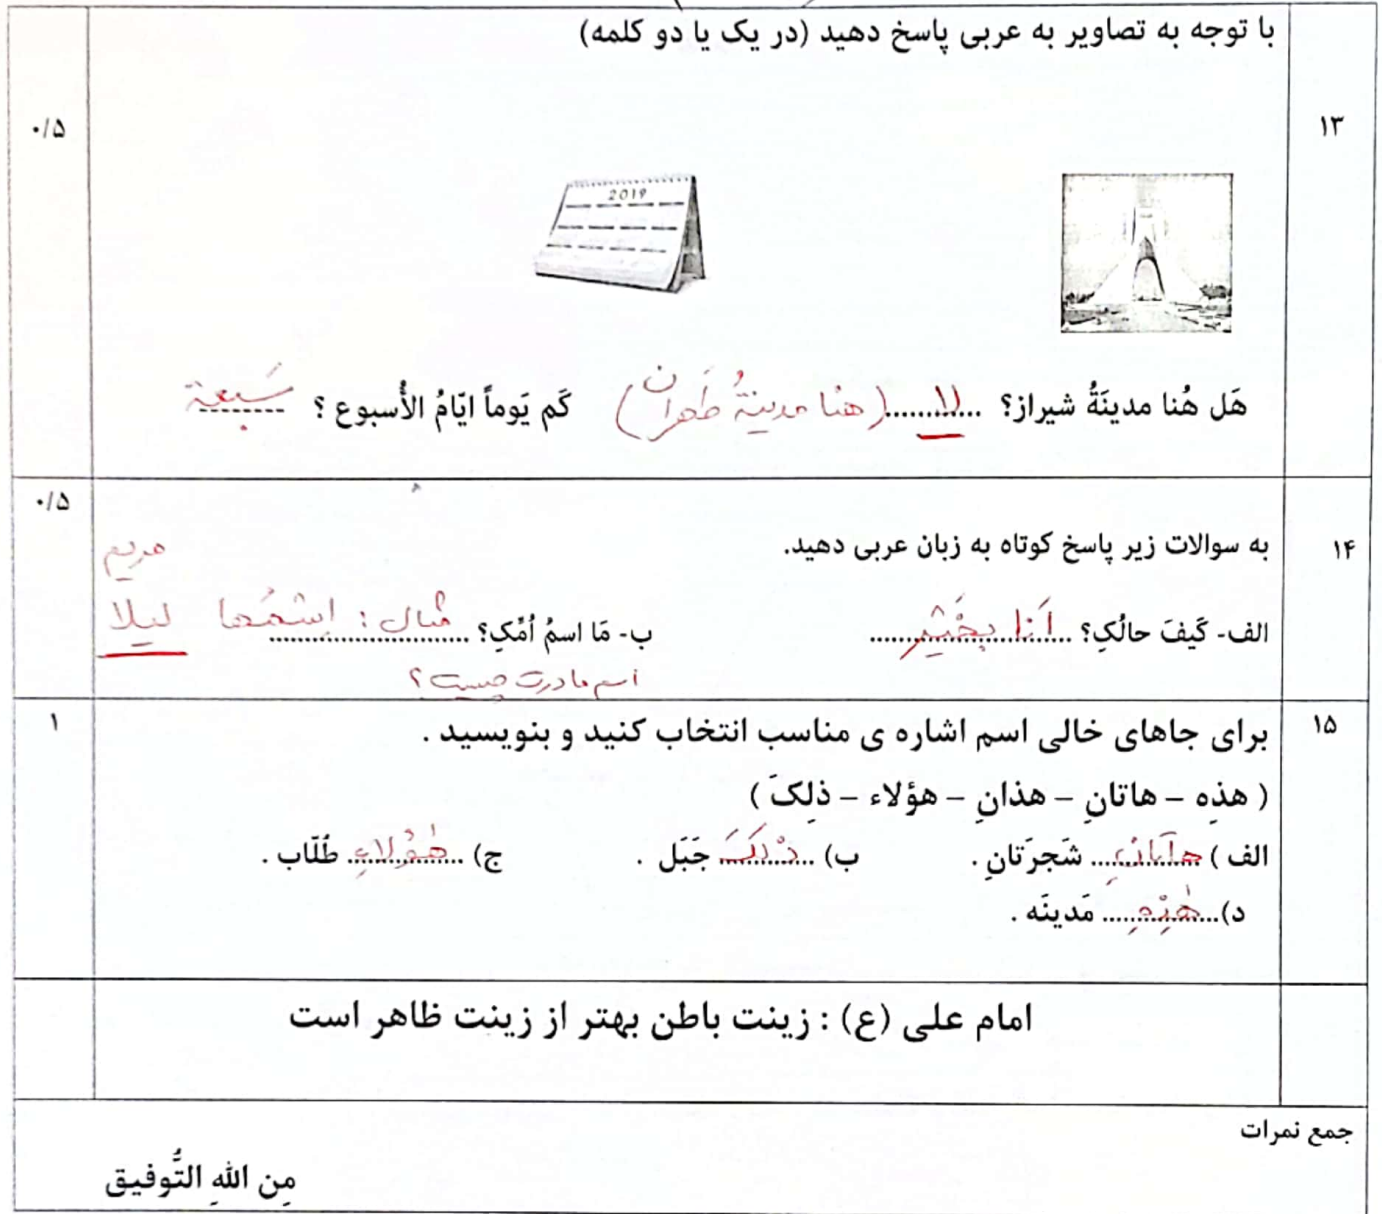 ۱۳
با توجه به تصاویر به عربی پاسخ دهید (در یک یا دو کلمه)
۰/۵
2019
هَل هُنا مدینَةُ شیراز؟ ..........لا (هنا مدینةُ طَهران) کَم یَوماً ایّامُ الأُسبوع ؟ سَبعة
۱۴
به سوالات زیر پاسخ کوتاه به زبان عربی دهید.
۰/۵
مریم
الف- کَیفَ حالُکِ؟ أنا بِخَیر ب- مَا اسمُ اُمِّکِ؟ مثال : اِسمُها لیلا
اسم مادرت چیست؟
۱۵
برای جاهای خالی اسم اشاره ی مناسب انتخاب کنید و بنویسید .
۱
( هذِه – هاتانِ – هذانِ – هؤلاء – ذلِکَ )
الف ) هاتانِ شَجرَتانِ . ب) ذلِکَ جَبَل . ج) هٰؤُلاءِ طُلّاب .
د) هٰذِهِ مَدینَه .
امام علی (ع) : زینت باطن بهتر از زینت ظاهر است
جمع نمرات
مِن اللهِ التُّوفیق